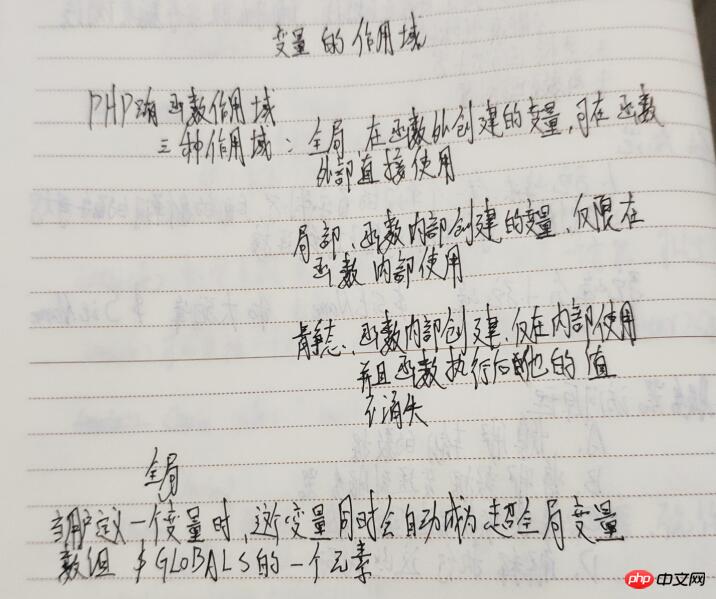 变量的作用域
PHP 函数作用域
三种作用域: 全局, 在函数外创建的变量,可在函数
外部直接使用
局部、函数内部创建的变量,仅限在
函数内部使用
静态、函数内部创建,仅在内部使用
并且函数执行后 他的值
不消失
全局
当用户定义一个变量时,这个变量同时会自动成为超全局变量
数组 $GLOBALS的一个元素
php 中文网